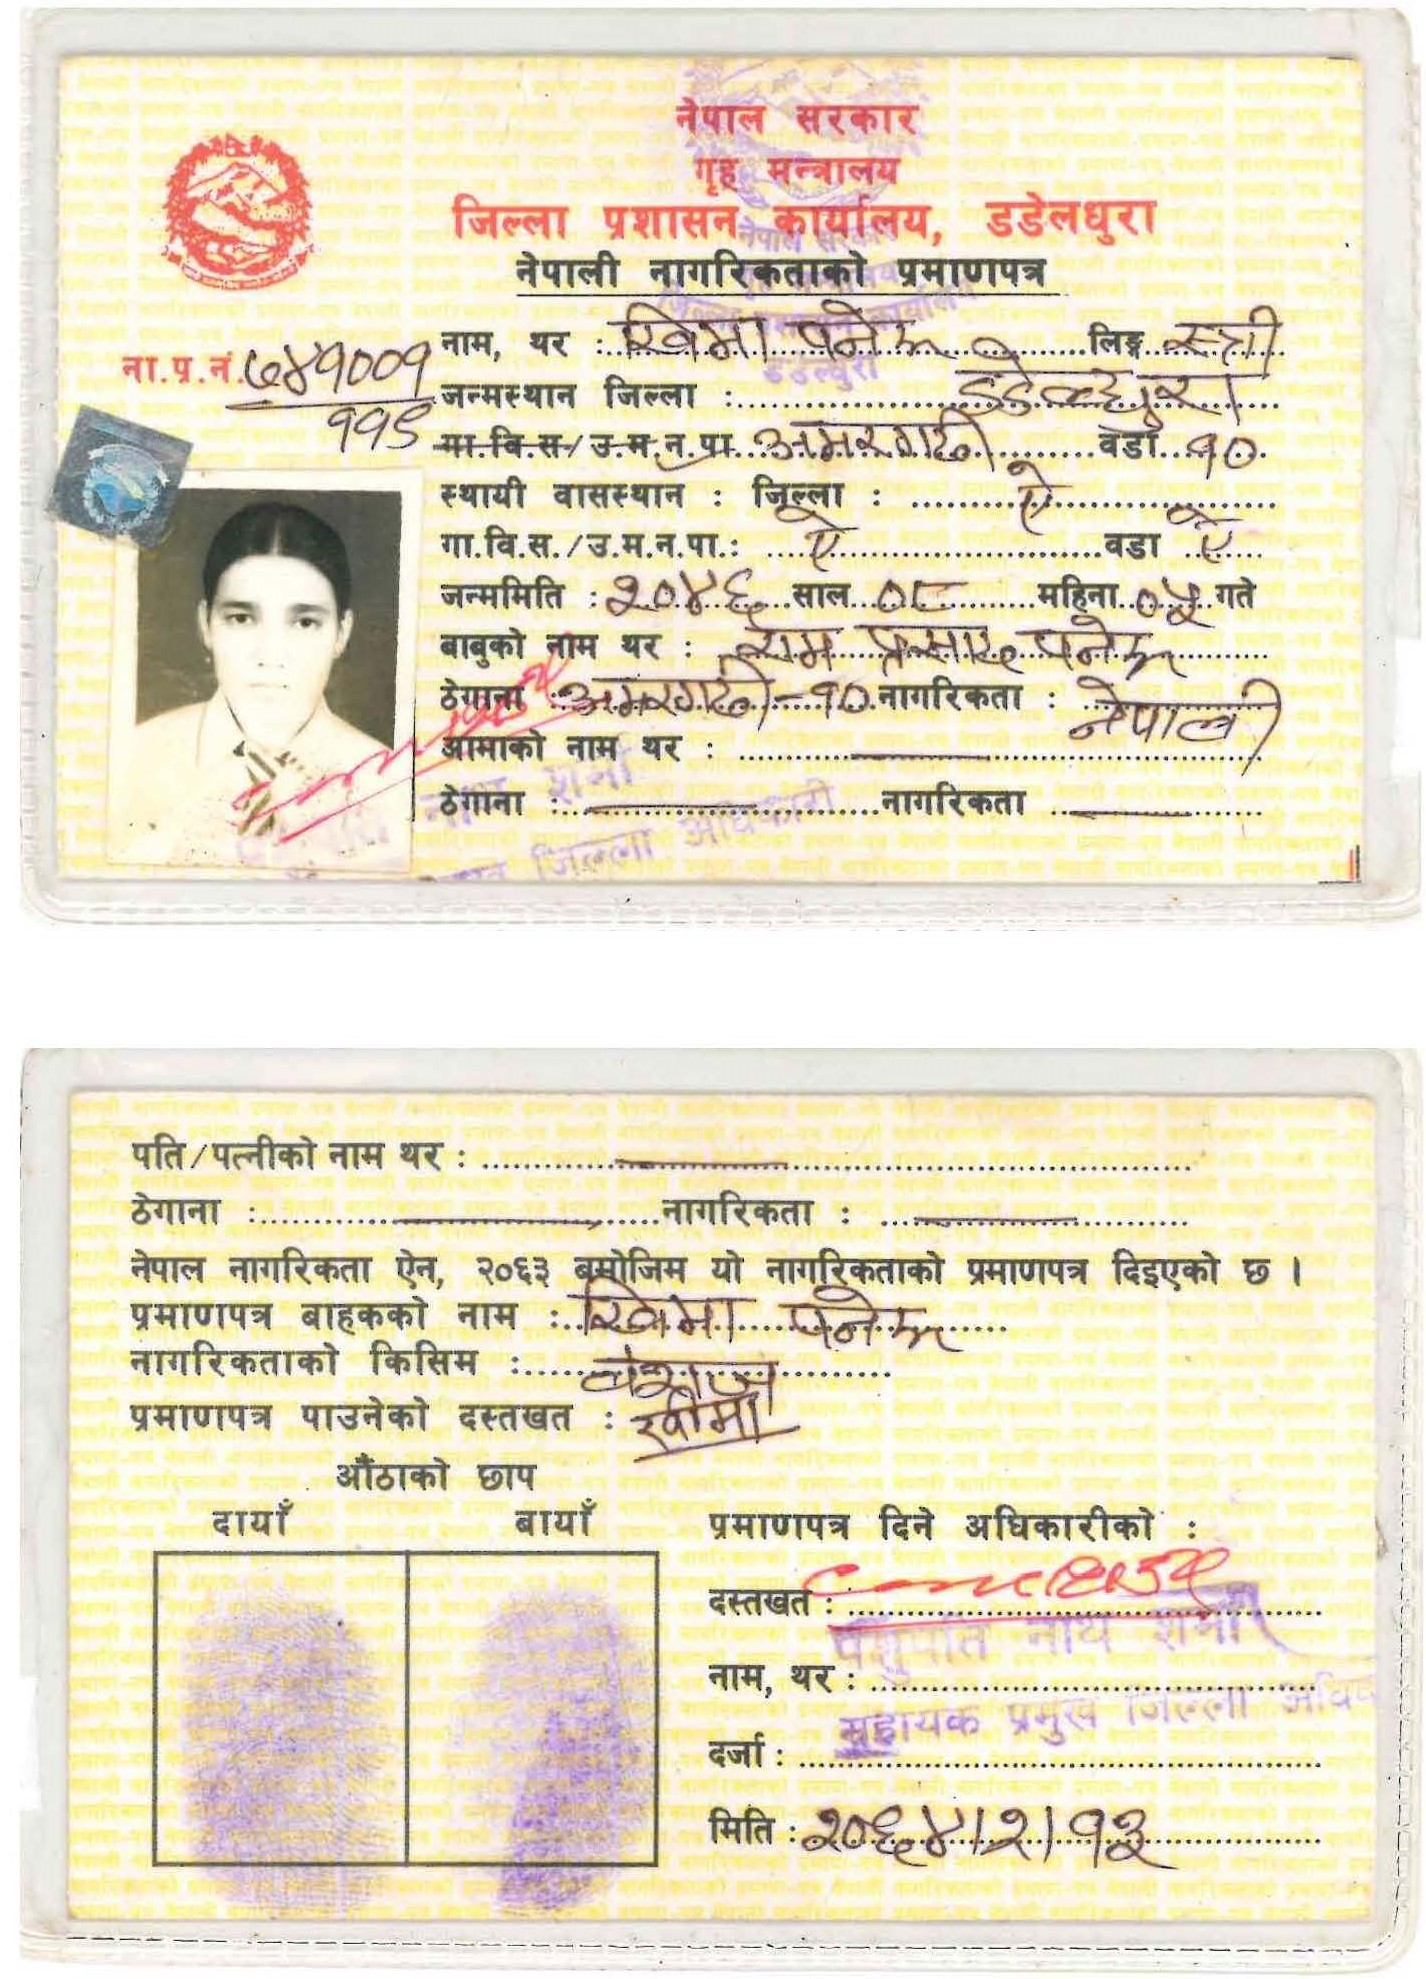 नेपाल सरकार
गृह मन्त्रालय
जिल्ला प्रशासन कार्यालय, डडेलधुरा
नेपाली नागरिकताको प्रमाणपत्र
नाम, थर : खिमा पनेरू लिङ्ग स्त्री
ना.प्र.नं. ७४१००१
११९
जन्मस्थान जिल्ला : डडेल्धुरा
गा.वि.स/उ.म.न.पा. अमरगढी वडा १०
स्थायी वासस्थान : जिल्ला : ऐ
गा.वि.स./उ.म.न.पा.: ऐ वडा ऐ
जन्ममिति : २०४६ साल ०८ महिना ०५ गते
बाबुको नाम थर : राम प्रसाद पनेरू
ठेगाना : अमरगढी-१० नागरिकता : नेपाली
आमाको नाम थर :
ठेगाना : नागरिकता
पति/पत्नीको नाम थर :
ठेगाना : नागरिकता :
नेपाल नागरिकता ऐन, २०६३ बमोजिम यो नागरिकताको प्रमाणपत्र दिइएको छ ।
प्रमाणपत्र बाहकको नाम : खिमा पनेरू
नागरिकताको किसिम : बंशज
प्रमाणपत्र पाउनेको दस्तखत : खीमा
औंठाको छाप
दायाँ बायाँ
प्रमाणपत्र दिने अधिकारीको :
दस्तखत :
पशुपति नाथ शर्मा
नाम, थर :
सहायक प्रमुख जिल्ला
दर्जा :
मिति : २०६४।२।१३